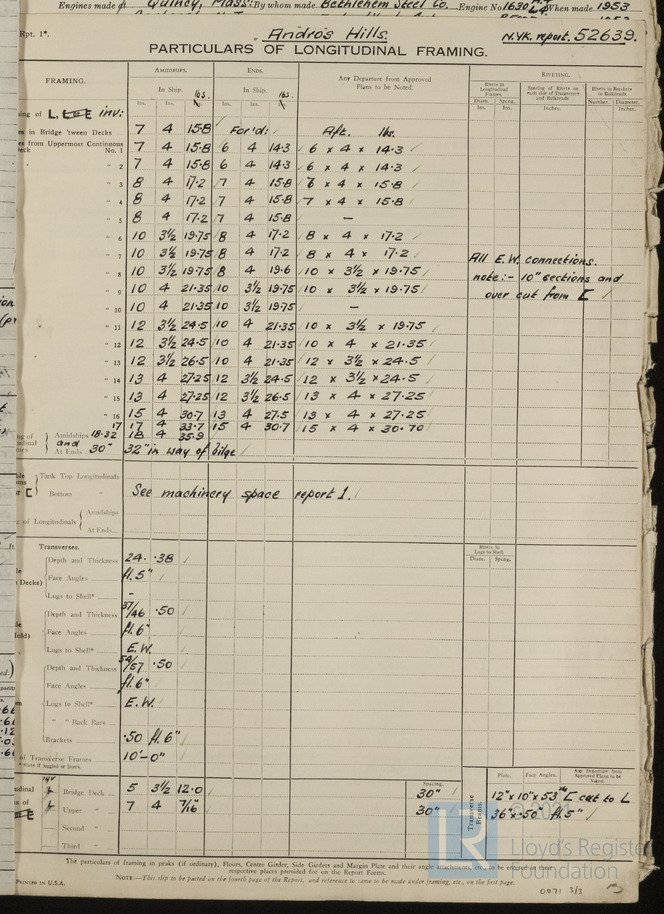 Engines made at Quincy, Mass. By whom made Bethlehem Steel Co. Engine No. 1630 When made 1953
Rpt. 1*. Andros Hills. N.YK. report. 52639.
PARTICULARS OF LONGITUDINAL FRAMING.
FRAMING. AMIDSHIPS. ENDS. Any Departure from Approved Plans to be Noted. RIVETING.
In Ship. lbs. In Ship. lbs. Rivets in Longitudinal Frames. Spacing of Rivets on each side of Transverses and Bulkheads Rivets in Brackets to Bulkheads.
Ins. Ins. Ins. Ins. Diam. Spcng. Inches. Number. Diameter.
Ins. Ins. Inches.
ing of L. inv:
es in Bridge 'tween Decks 7 4 15.8 For'd: Aft. lbs.
es from Uppermost Continuous
Deck No. 1 7 4 15.8 6 4 14.3 6 × 4 × 14.3
" 2 7 4 15.8 6 4 14.3 6 × 4 × 14.3
" 3 8 4 17.2 7 4 15.8 7 × 4 × 15.8
" 4 8 4 17.2 7 4 15.8 7 × 4 × 15.8
" 5 8 4 17.2 7 4 15.8 —
" 6 10 3½ 19.75 8 4 17.2 8 × 4 × 17.2
" 7 10 3½ 19.75 8 4 17.2 8 × 4 × 17.2 All E.W. connections.
" 8 10 3½ 19.75 8 4 19.6 10 × 3½ × 19.75 note:- 10" sections and
" 9 10 4 21.35 10 3½ 19.75 10 × 3½ × 19.75 over cut from [
" 10 10 4 21.35 10 3½ 19.75 —
" 11 12 3½ 24.5 10 4 21.35 10 × 3½ × 19.75
" 12 12 3½ 24.5 10 4 21.35 10 × 4 × 21.35
" 13 12 3½ 26.5 10 4 21.35 12 × 3½ × 24.5
" 14 13 4 27.25 12 3½ 24.5 12 × 3½ × 24.5
" 15 13 4 27.25 12 3½ 26.5 13 × 4 × 27.25
" 16 15 4 30.7 13 4 27.5 13 × 4 × 27.25
17 17 4 33.7 15 4 30.7 15 × 4 × 30.70
Amidships 18-32 18 4 35.9
and
At Ends 30" 32" in way of bilge
Tank Top Longitudinals
Bottom " See machinery space report 1.
g of Longitudinals Amidships
At Ends
Transverses. Rivets in Lugs to Shell
Diam. Spcng.
Depth and Thickness 24. .38
Decks) Face Angles fl. 5"
Lugs to Shell* -
Depth and Thickness 37/46 .50
Hold) Face Angles fl. 6"
Lugs to Shell* E.W.
Depth and Thickness 54/57 .50
Face Angles fl. 6"
Lugs to Shell* E.W.
" " Back Bars
Brackets .50 fl. 6"
of Transverse Frames 10'-0"
* State if joggled or liners.
Spacing. Plate. Face Angles. Any Departure from Approved Plans to be Noted.
Bridge Deck 5 3½ 12.0 30" Transverse Beams. 12" × 10" × 53# [ cut to L
Upper " 7 4 7/16 30" 36" × .50" fl. 5"
Second "
Third "
The particulars of framing in peaks (if ordinary), Floors, Centre Girder, Side Girders and Margin Plate and their angle attachments, etc., to be entered in their
respective places provided for on the Report Forms.
NOTE:—This slip to be pasted on the fourth page of the Report, and reference to same to be made under framing, etc., on the first page.
PRINTED IN U.S.A.
0071 3/3
LR
© 2021
Lloyd's Register
Foundation